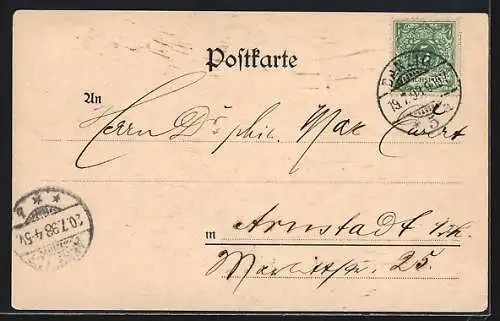 Postkarte
An
Herrn Dr phil. Max
DANZIG
19.7.98
5
20.7.98.4-5N.
in Arnstadt i. Th.
Marlittstr. 25.